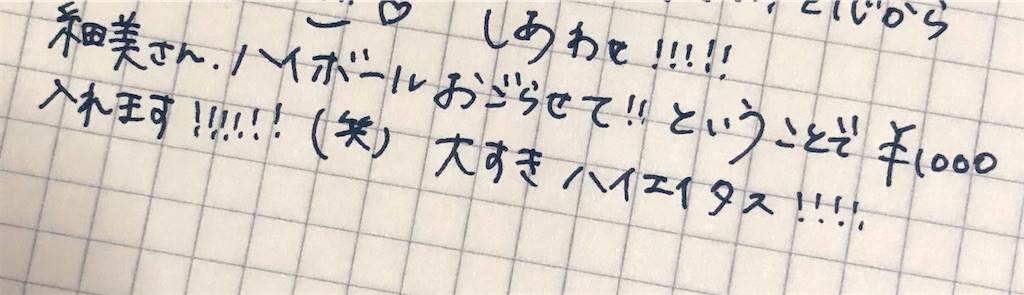 しあわせ!!!!!
細美さん.ハイボールおごらせて!!ということで¥1000
入れます!!!!!!(笑) 大すきハイエイタス!!!!